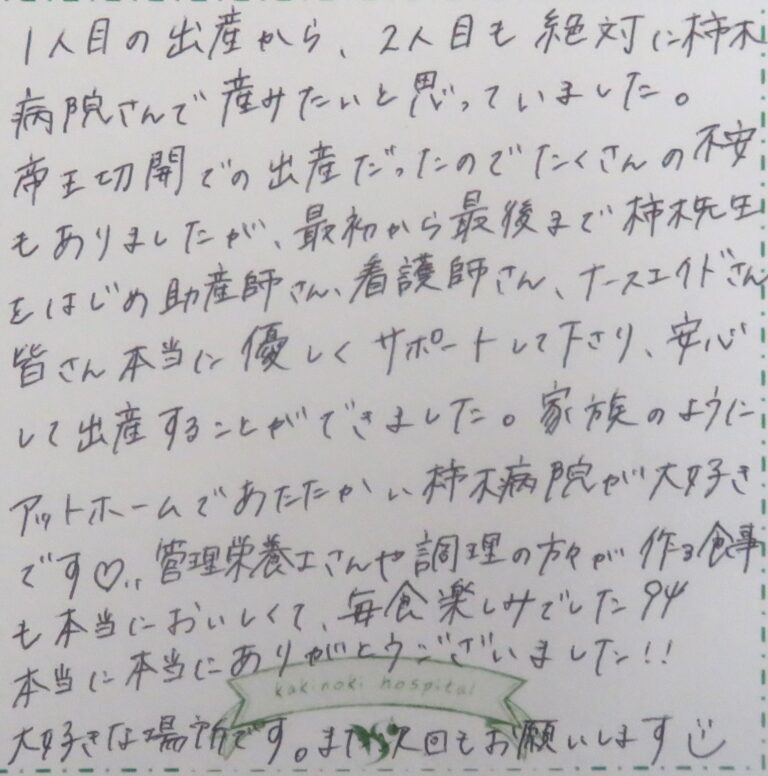 1人目の出産から、2人目も絶対に柿木
病院さんで産みたいと思っていました。
帝王切開での出産だったのでたくさんの不安
もありましたが、最初から最後まで柿木先生
をはじめ助産師さん、看護師さん、ナースエイドさん
皆さん本当に優しくサポートして下さり、安心
して出産することができました。家族のように
アットホームであたたかい柿木病院が大好き
です♡、、管理栄養士さんや調理の方々が作る食事
も本当においしくて、毎食楽しみでした
本当に本当にありがとうございました!!
kakinoki hospital
大好きな場所です。また次回もお願いします